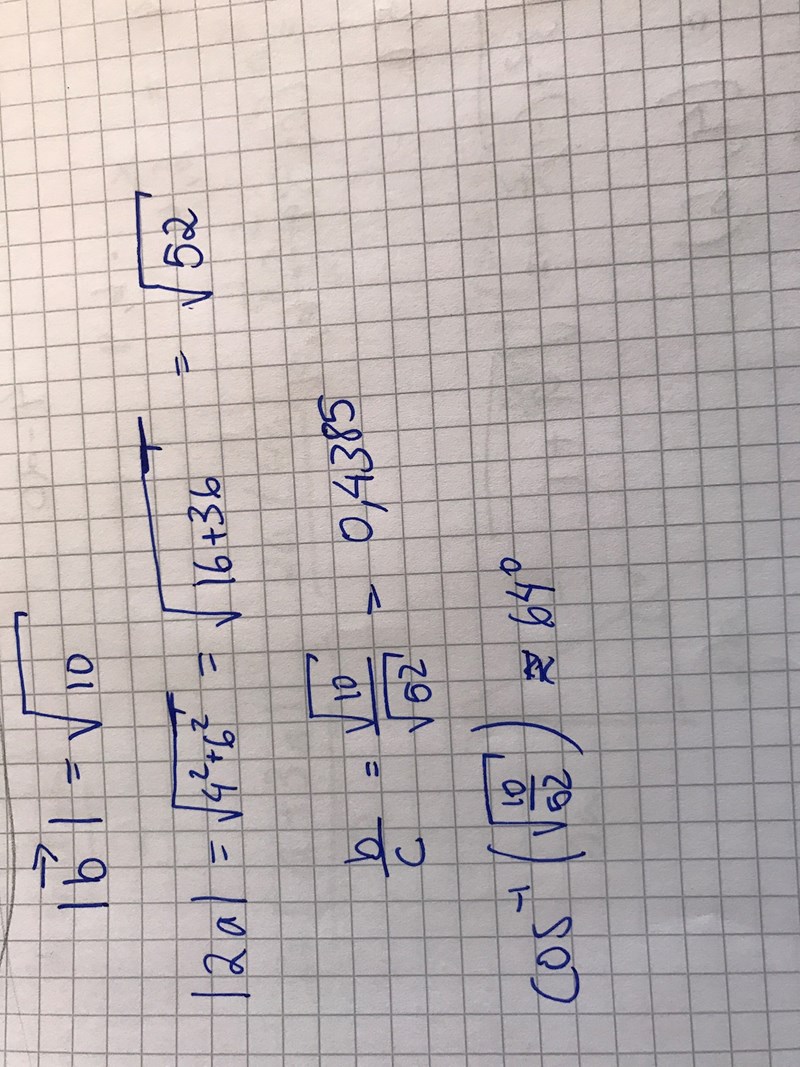 |b⃗| = √10
|2a| = √4²+6² = √16+36 = √52
b/c = √10/√52 = 0,4385
cos⁻¹(√10/52) ≈ 64°